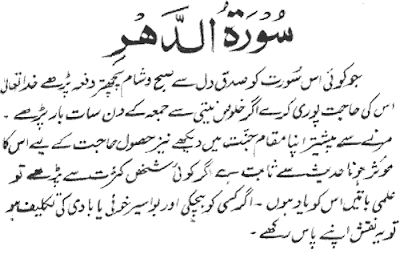 سُورَةُ الدَّهْرِ
جو کوئی اس سُورت کو صدق دل سے صبح و شام پچھتر دفعہ پڑھے خدا تعالیٰ
اس کی حاجت پوری کرے اگر خلوص نیتی سے جمعہ کے دن سات بار پڑھے ۔
مرنے سے پیشتر اپنا مقام جنّت میں دیکھے نیز حصول حاجت کے لیے اس کا
مؤثر ہونا حدیث سے ثابت ہے اگر کوئی شخص کثرت سے پڑھے تو
علمی باتیں اس کو یاد ہوں ۔ اگر کسی کو ہچکی اور بواسیر خونی یا بادی کی تکلیف ہو
تو یہ نقش اپنے پاس رکھے ۔